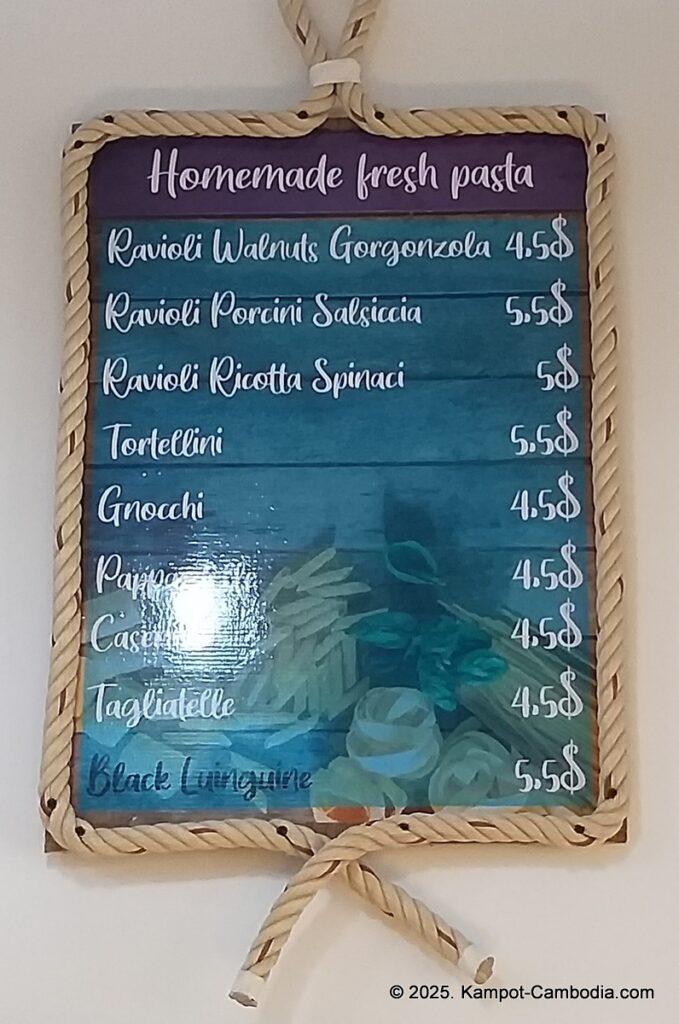 Homemade fresh pasta
Ravioli Walnuts Gorgonzola 4.5$
Ravioli Porcini Salsiccia 5.5$
Ravioli Ricotta Spinaci 5$
Tortellini 5.5$
Gnocchi 4.5$
4.5$
4.5$
Tagliatelle 4.5$
Black Luinguine 5.5$
© 2025. Kampot-Cambodia.com